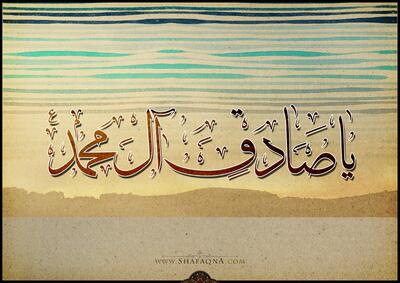 يا صَادِقَ آلَ مُحَمَّد ع
www.ShafaqnA.com